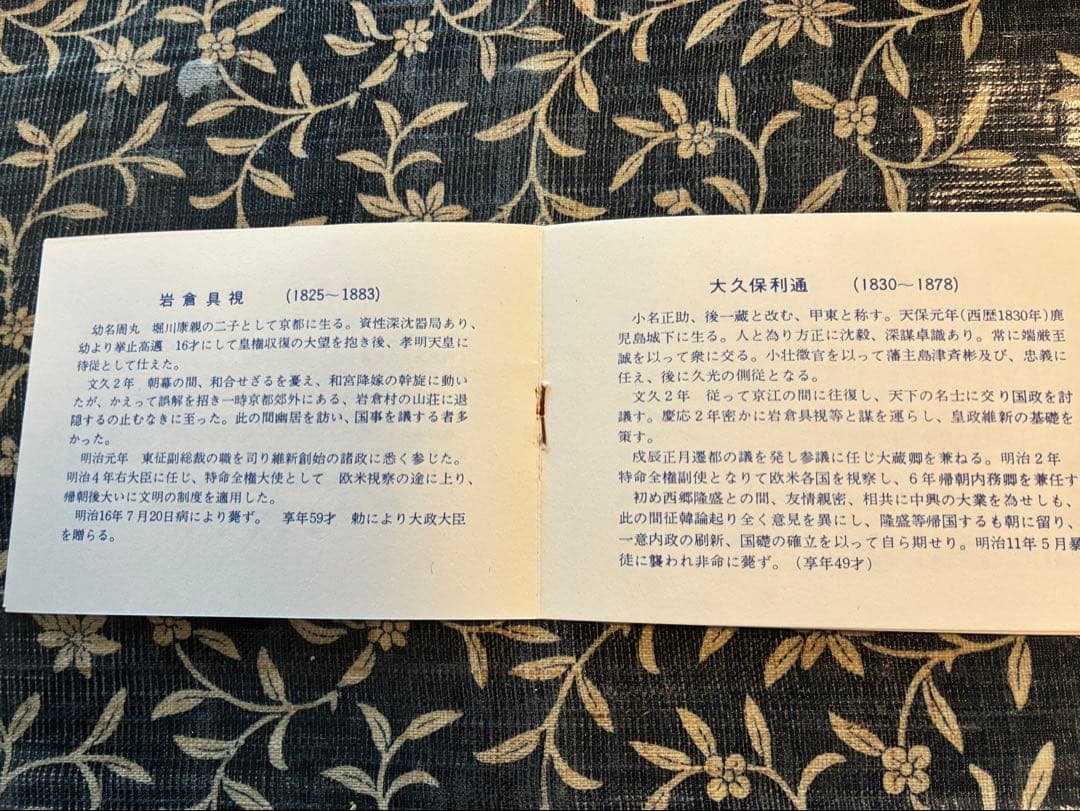 岩倉具視 (1825～1883)
幼名周丸 堀川康親の二子として京都に生る。資性深沈器局あり、
幼より挙止高邁 16才にして皇権収復の大望を抱き後、孝明天皇に
待従として仕えた。
文久2年 朝幕の間、和合せざるを憂え、和宮降嫁の幹旋に動い
たが、かえって誤解を招き一時京都郊外にある、岩倉村の山荘に退
隠するの止むなきに至った。此の間幽居を訪い、国事を議する者多
かった。
明治元年 東征副総裁の職を司り維新創始の諸政に悉く参じた。
明治4年右大臣に任じ、特命全権大使として 欧米視察の途に上り、
帰朝後大いに文明の制度を適用した。
明治16年7月20日病により薨ず。 享年59才 勅により大政大臣
を贈らる。
大久保利通 (1830～1878)
小名正助、後一蔵と改む、甲東と称す。天保元年(西歴1830年)鹿
児島城下に生る。人と為り方正に沈毅、深謀卓識あり。常に端厳至
誠を以って衆に交る。小壮微官を以って藩主島津斉彬及び、忠義に
任え、後に久光の側従となる。
文久2年 従って京江の間に往復し、天下の名士に交り国政を討
議す。慶応2年密かに岩倉具視等と謀を運らし、皇政維新の基礎を
策す。
戊辰正月遷都の議を発し参議に任じ大蔵卿を兼ねる。明治2年
特命全権副使となりて欧米各国を視察し、6年帰朝内務卿を兼任す
初め西郷隆盛との間、友情親密、相共に中興の大業を為せしも、
此の間征韓論起り全く意見を異にし、隆盛等帰国するも朝に留り、
一意内政の刷新、国礎の確立を以って自ら期せり。明治11年5月暴
徒に襲われ非命に薨ず。(享年49才)